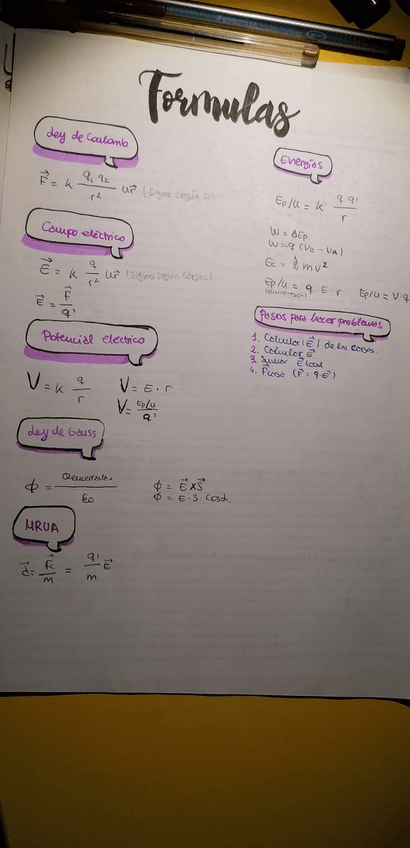 Formulas
Ley de Coulomb
F⃗ = K q₁ q₂ / r² ur⃗ (Signo según
Campo eléctrico
E⃗ = K q / r² ur⃗ (Signo según
E⃗ = F⃗ / q'
Potencial electrico
V = K q / r    V = E · r
V = Ep/u / q'
Ley de Gauss
ϕ = Qencerrada / εo    ϕ = E⃗ X S⃗
ϕ = E · S · Cosα.
MRUA
= F⃗ / m = q' / m E⃗
Energías
Ep/u = K q q' / r
W = ΔEp
W = q (VB - VA)
Ec = ½ mv²
Ep/u = q E · r    Ep/u = V · q
Pasos para hacer problemas
1. Calcular |E⃗| de las cargas.
2. Calcular E⃗
3. Sumar E⃗ total
4. (F⃗ = q · E⃗)